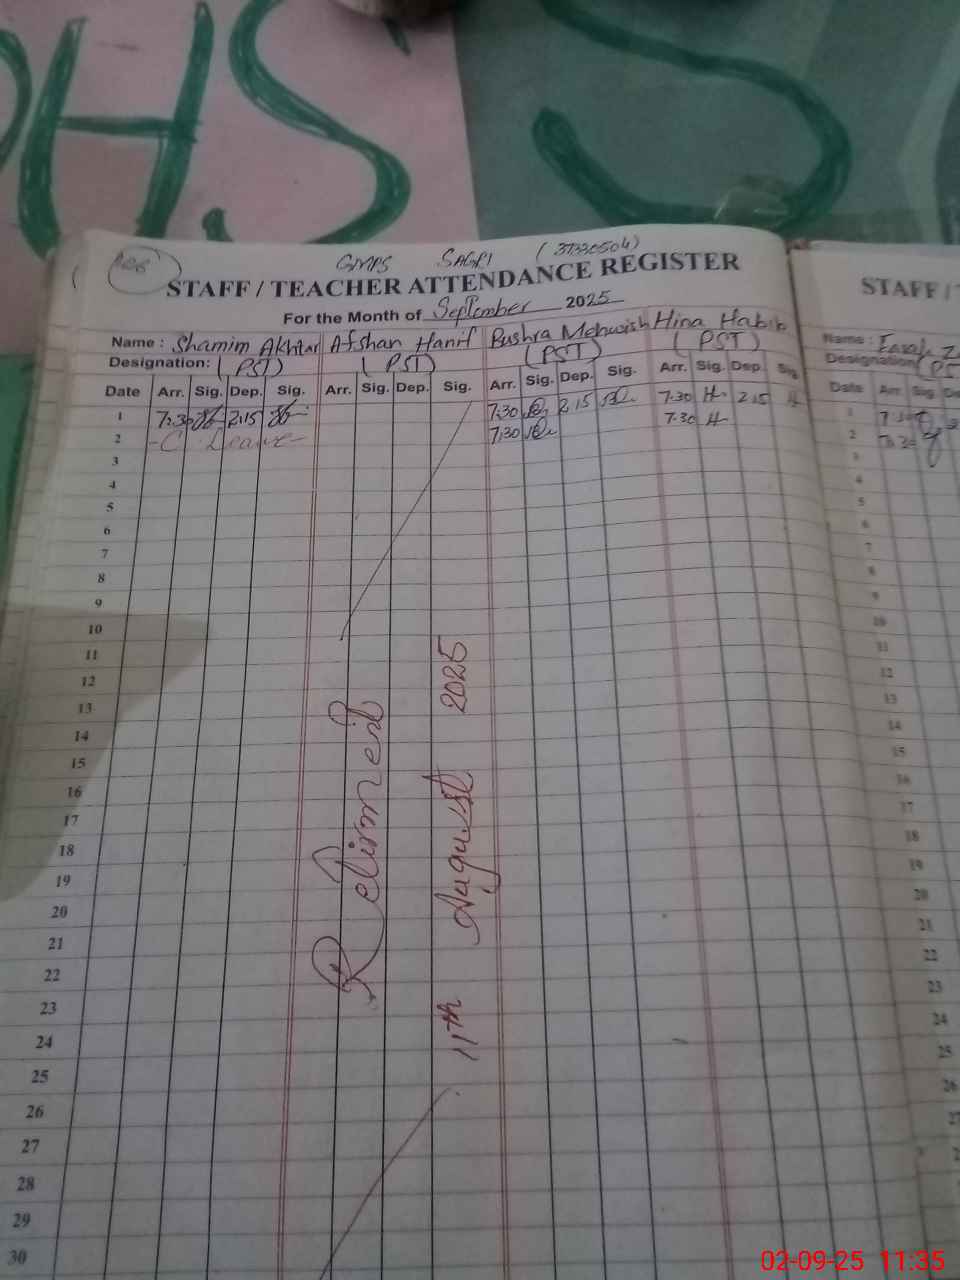 HS S
GMPS SAGRI (37330504)
STAFF / TEACHER ATTENDANCE REGISTER
For the Month of September 2025
Name : Shamim Akhtar Afshan Hanif Bushra Mehwish Hina Habib
Designation: (PST) (PST) (PST) (PST)
Date Arr. Sig. Dep. Sig. Arr. Sig. Dep. Sig. Arr. Sig. Dep. Sig. Arr. Sig. Dep. Sig
1 7:30 2:15 7:30 2:15 7:30 H 2:15 H
2 - C Leave - 7:30 7:30 H
3
4
5
6
7
8
9
10
11
12
13
14
15
16
17
18
19
20
21
22
23
24
25
26
27
28
29
30
Retirment
11th August 2025
STAFF /
Name : Farah
Designation (PST
Date Arr Sig De
1 7:30
2 7:30
3
4
5
6
7
8
9
10
11
12
13
14
15
16
17
18
19
20
21
22
23
24
25
26
27
02-09-25 11:35